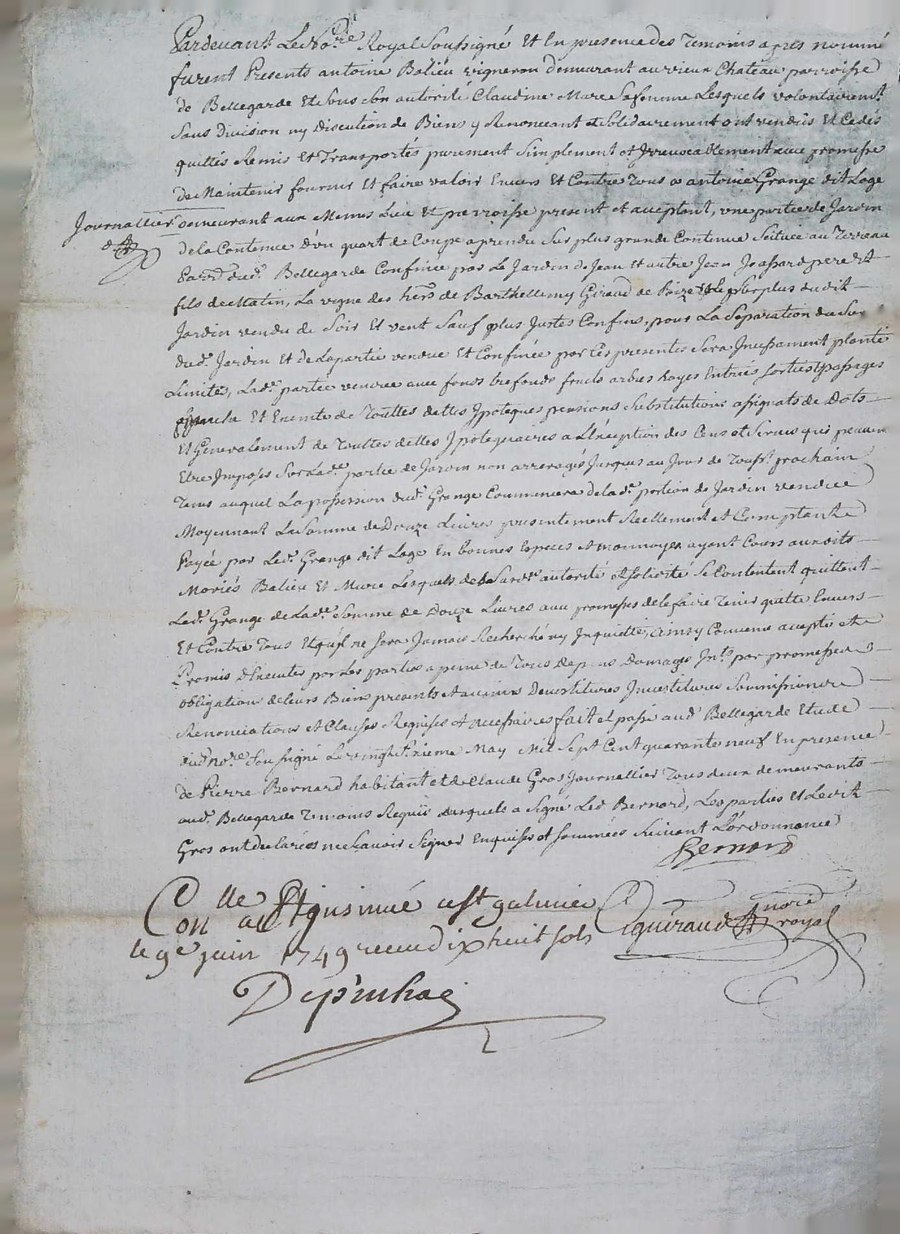 Pardevant Le No.re Royal Soussigné Et En presence des Temoins apres nommé
furent Presents antoine Balieu vigneron demeurant au vieux Chateau parroisse
de Bellegarde Et Sous Son autorité Claudine Mure Sa femme Lesquels volontairemt.
Sans Division ny Discution de Biens y Renonceant et Solidairement ont vendus Et Cedés
quittés Remis Et Transportés purement Simplement et Irrevocablement avec promesse
de Maintenir fournir Et faire valoir Envers Et Contre Tous a antoine Grange dit Loge
Journallier demeurant aux Memes Lieu Et parroisse present et acceptant, une partie de Jardin
de la Contenue d'un quart de Coupe a prendre Sur plus grande Contenue Scituée au Terreau
Bellegarde Confinée par Le Jardin de Jean Et autre Jean pere Et
fils de Matin, La vigne des hers. de Barthellemy Giraud de Et Le Surplus dudit
Jardin vendu de Soir Et vent Sauf plus Justes Confins, pour La Separation du
dud. Jardin Et de La partie vendue Et Confinée par Ces presentes Sera Incessament planté
Limites, Lad.e partie vendue avec fonds trefonds fruits arbres Entrées Sorties et passages
Et Exempte de Touttes dettes Ypoteques pensions Substitutions de Dots
Et Generalement de Touttes dettes Ypotequaires a L'Exeption des Cens et Servis qui peuvent
Etre Imposés Sur Lad.e partie de Jardin non arreragés Jusques au Jour de Touss.t prochain
Tems auquel La possession dud. Grange Commencera de lad.e portion de Jardin vendue
Moyennant La Somme de Douze Livres presentement Reellement et Comptant
Payée par Led. Grange dit Loge En bonnes Especes et monnoyes ayant Cours auxdits
Mariés Balieu Et Mure Lesquels de autorité et Se Contentent quittent
Led. Grange de Lad.e Somme de Douze Livres avec promesses de le faire Tenir quitte Envers
Et Contre Tous Et qu'il ne Sera Jamais Recherché ny Inquietté, ainsy Convenu accepté et
Promis d'Executer par Les parties a peine de Tous Depens Domages Ints. par promesses
obligation de leurs Biens presents et avenir Devestitures Investitures Soumissions
Renonciations et Clauses Requises et necessaires fait et passé aud. Bellegarde Etude
dud. Nore. Soussigné Le May Mil Sept Cent quarante neuf En presence
de Pierre Bernard habitant et de Claude Gros Journallier Tous deux demeurants
aud. Bellegarde Temoins Requis desquels a Signé Led. Bernard, Les parties Et Ledit
Gros ont déclarées ne Sçavoir Signer Enquises et Sommées Suivant L'ordonnance
Bernard
Con.lle Et Insinué a St galmier giguiraud nore royal
le 9e juin 1749 receu dix huit sols